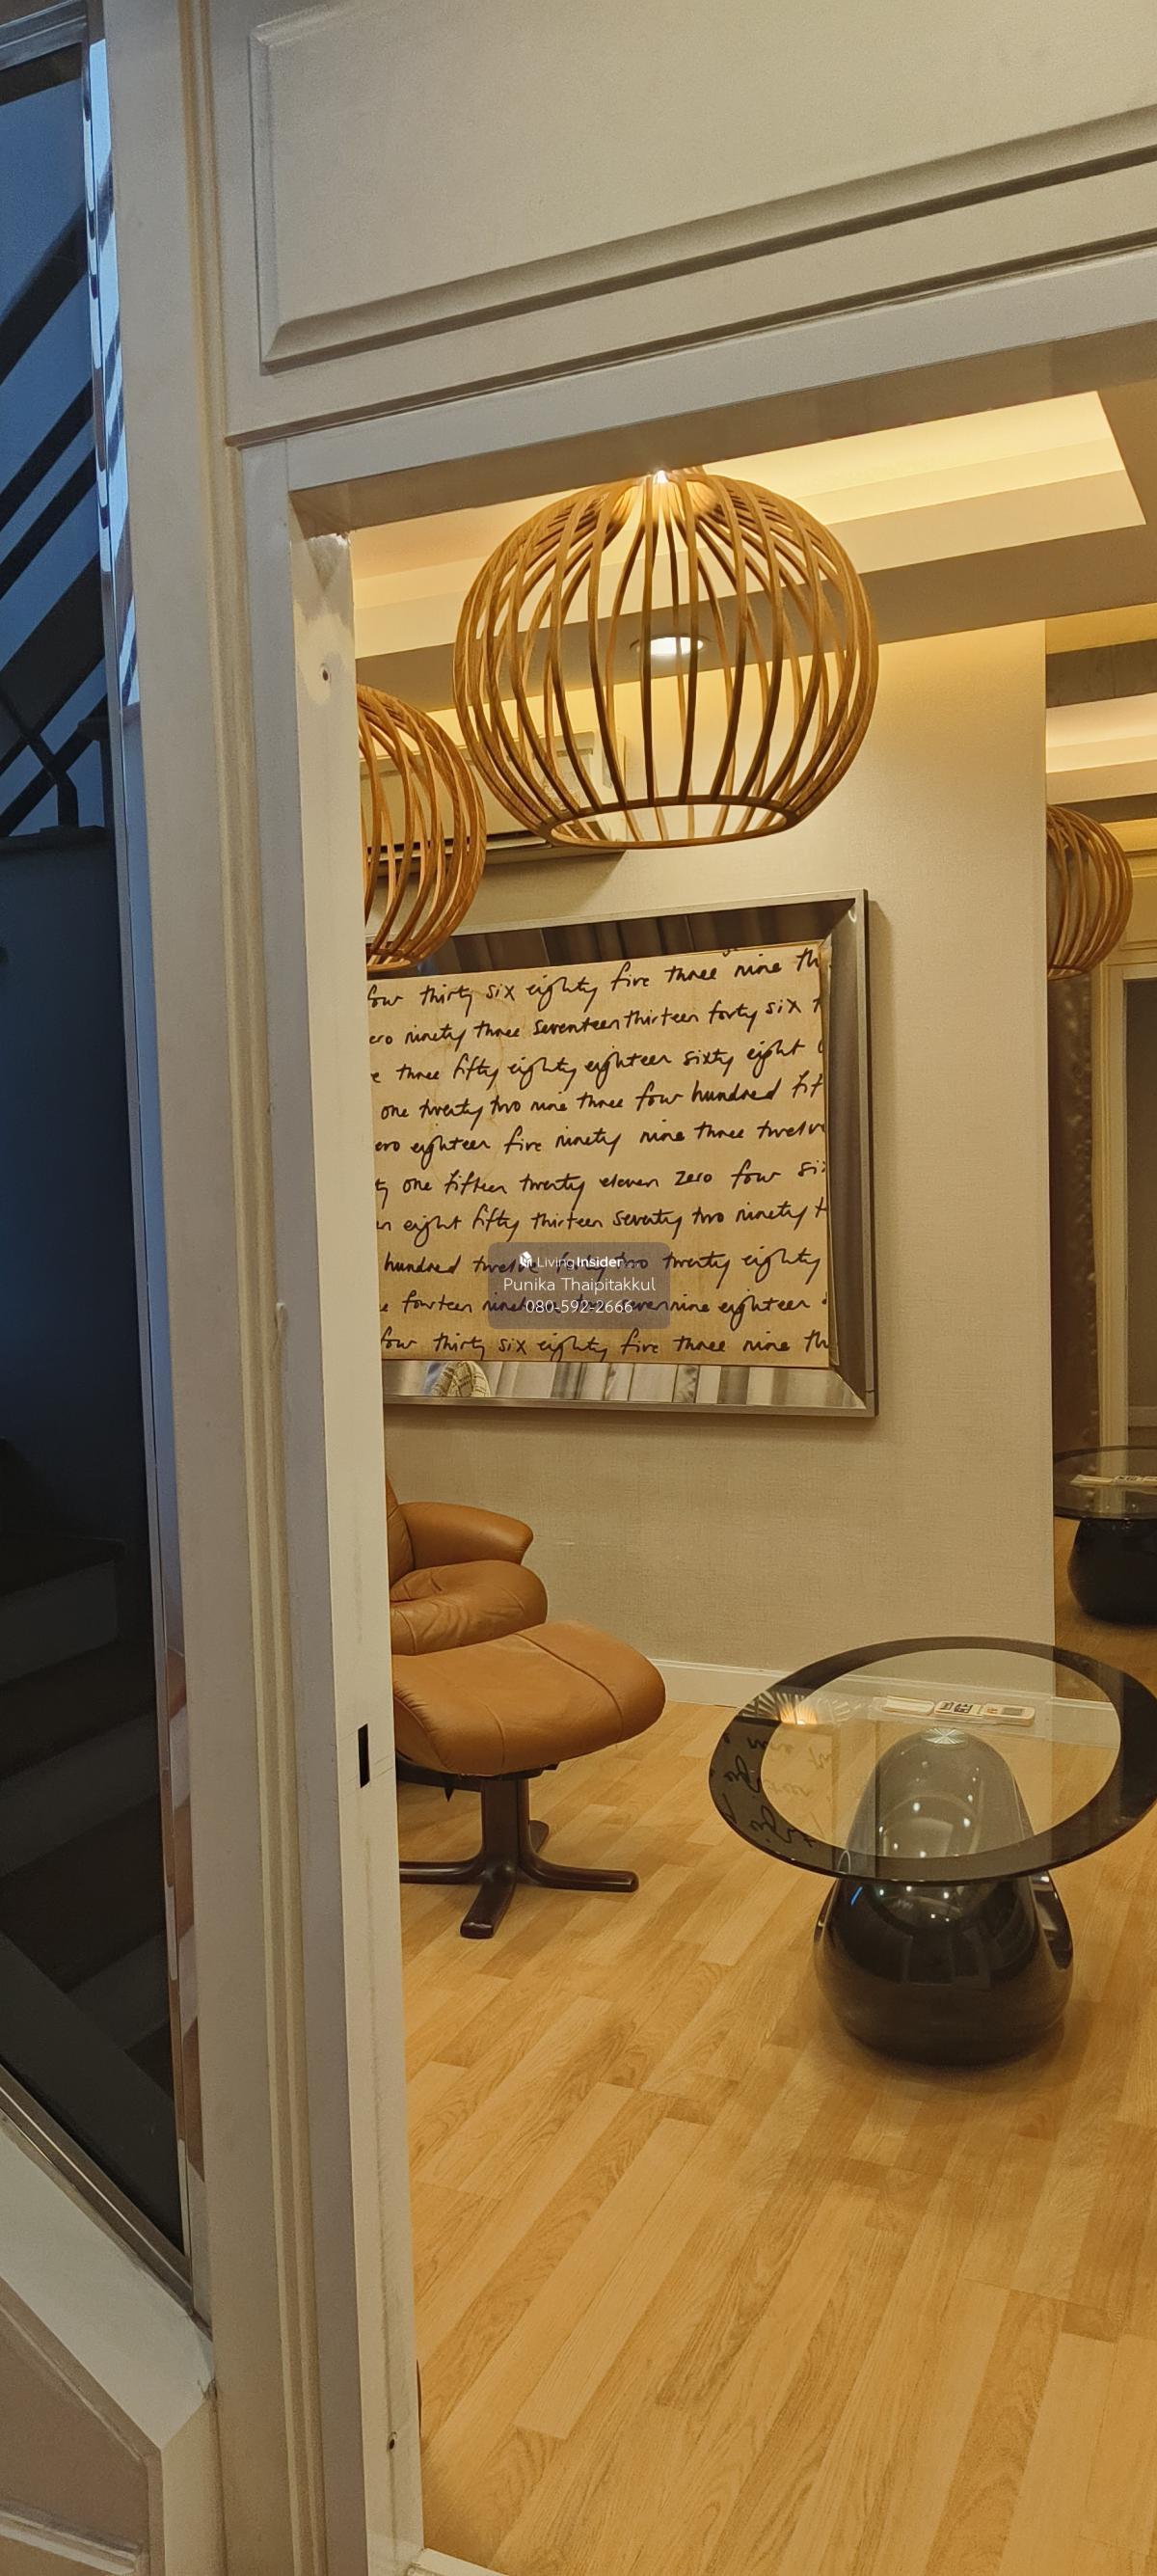 four thirty six eighty five three nine th
ero ninety three seventeen thirteen forty six t
e three fifty eighty eighteen sixty eight
one twenty two nine three four hundred fif
ero eighteen five ninety nine three twelve
ty one fifteen twenty eleven zero four six
en eight fifty thirteen seventy two ninety t
hundred twelve forty two twenty eighty
LivingInsider
Punika Thaipitakkul
080-592-2666
e fourteen nineteen two seven nine eighteen
four thirty six eighty five three nine th